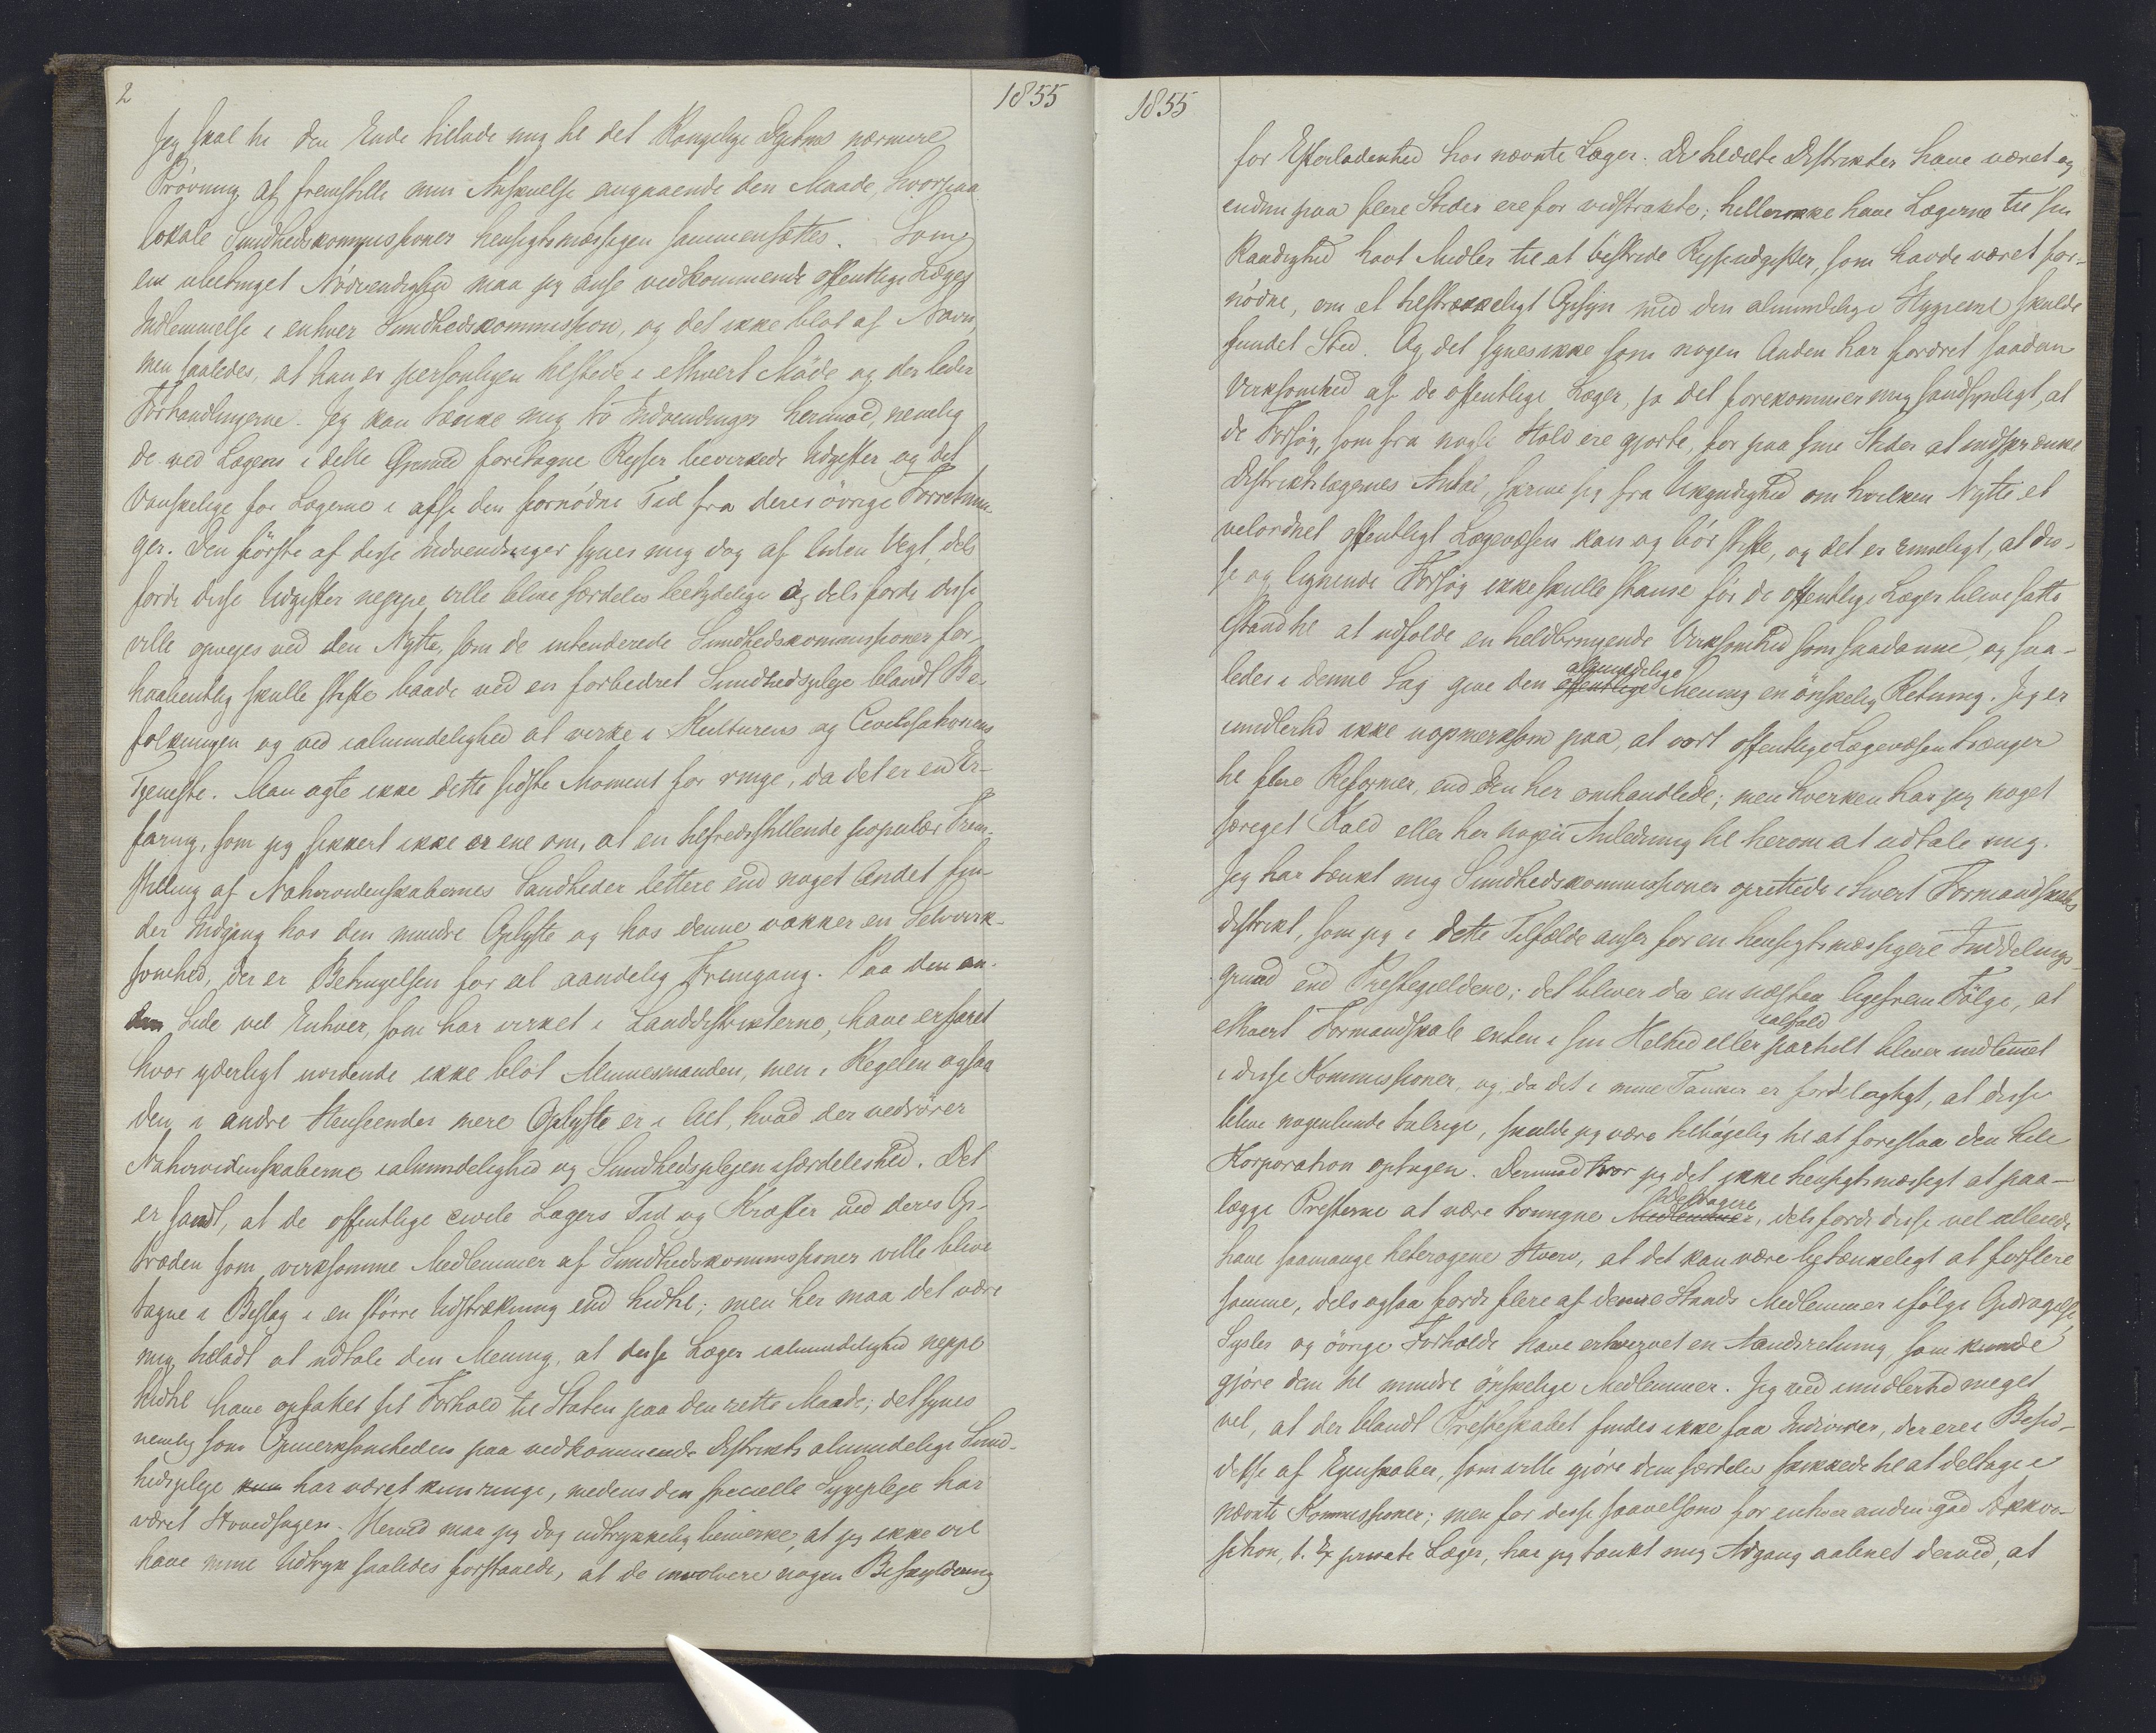 2
1855
Jeg skal til den Ende tillade mig til det Kongelige Dptms nærmere
Prøvning at fremstille min Anskuelse angaaende den Maade, hvorpaa
lokale Sundhedskommissioner hensigtsmæssigen sammensættes. Som
en ubetinget Nødvendighed maa jeg anse vedkommende offentlige Læges
Indlemmelse i enhver Sundhedskommission, og det ikke blot af Navn,
men saaledes, at han er personligen tilstede i ethvert Møde og der leder
Forhandlingerne. Jeg kan tænke mig to Indvendinger herimod, nemlig
de ved Lægens i dette Øiemed foretagne Reiser bevirkede Udgifter og det
Vanskelige for Lægerne i afse den fornødne Tid fra deres øvrige Forretnin-
ger. Den første af disse Indvendinger synes mig dog af liden Vegt, dels
fordi disse Udgifter neppe ville blive særdeles betydelige og dels fordi disse
ville opveies ved den Nytte, som de intenderede Sundhedskommissioner for-
haabentlig skulle stifte baade ved en forbedret Sundhedspleje blandt Be-
folkningen og ved ialmindelighed at virke i Kulturens og Civilisationens
Tjeneste. Man agte ikke dette sidste Moment for ringe, da det er en Er-
faring, som jeg sikkert ikke er ene om, at en tilfredsstillende populær Frem-
stilling af Naturvidenskabernes Sandheder lettere end noget Andet fin-
der Indgang hos den mindre Oplyste og hos denne vækker en Selvvirk-
somhed, der er Betingelsen for al aandelig Fremgang. Paa den an-
den Side vil Enhver, som har virket i Landdistrikterne, have erfaret
hvor yderligt uvidende ikke blot Almuesmanden, men i Regelen ogsaa
den i andre Henseender mere Oplyste er i Alt, hvad der vedrører
Naturvidenskaberne ialmindelighed og Sundhedsplejen isærdeleshed. Det
er sandt, at de offentlige civile Lægers Tid og Kræfter ved deres Op-
træden som virksomme Medlemmer af Sundhedskommissioner ville blive
tagne i Beslag i en større Udstrækning end hidtil; men her maa det være
mig tilladt at udtale den Mening, at disse Læger ialmindelighed neppe
hidtil have opfattet sit Forhold til Staten paa den rette Maade; det synes
nemlig som Opmerksomheden paa vedkommende Distrikts almindelige Sund-
hedspleje kun har været kun ringe, medens den specielle Sygepleje har
været Hovedsagen. Herved maa jeg dog udtrykkelig bemærke, at jeg ikke vil
have mine Udtryk saaledes forstaaede, at de involvere nogen Beskyldning
1855
for Efterladenhed hos nævnte Læger. De tildelte Distrikter have været og
endnu paa flere Steder ere for vidstrakte; heller ikke have Lægerne til sin
Raadighed havt Midler til at bestride Rejseudgifter, som havde været for-
nødne, om et tilstrækkeligt Opsyn med den almindelige Hygieine skulde
fundet Sted. Og det synes ikke som nogen Anden har fordret saadan
Virksomhed af de offentlige Læger, ja det forekommer mig sandsynligt, at
de Forsøg, som fra nogle Hold ere gjorte, for paa sine Steder at indskrænke
Distriktslægernes Antal, skrive sig fra Ukyndighed om hvilken Nytte et
velordnet offentligt Lægevæsen kan og bør stifte, og det er rimeligt, at dis-
se og lignende Forsøg ikke skulle standse før de offentlige Læger blive satte
istand til at udfolde en heldbringende Virksomhed som saadanne, og saa-
ledes i denne Sag give den offentlige almindelige Mening en ønskelig Retning. Jeg er
imidlertid ikke uopmerksom paa, at vort offentlige Lægevæsen trænger
til flere Reformer, end den her omhandlede; men hverken har jeg noget
særeget Kald eller her nogen Anledning til herom at udtale mig.
Jeg har tænkt mig Sundhedskommissioner oprettede i hvert Formandskabs
distrikt, som jeg i dette Tilfælde anser for en hensigtsmæssigere Inddelings-
grund end Prestegjeldene; det bliver da en næsten ligefrem Følge, at
ethvert Formandskab enten i sin Helhed eller ialfald partielt bliver indlemmet
i disse Kommissioner, og, da det i mine Tanker er fordelagtigt, at disse
blive nogenlunde talrige, skulde jeg være tilbøjelig til at foreslaa den hele
Korporation optagen. Derimod tror jeg det ikke hensigtsmæssigt at paa-
lægge Presterne at være tvungne Medlemmer Deltagere, dels fordi disse vel allerede
have saamange heterogene Hverv, at det kan være betænkeligt at forflere
samme, dels ogsaa fordi flere af denne Stands Medlemmer ifølge Opdragelse,
Sysler og øvrige Forholde have erhvervet en Aandsretning, som kunde
gjøre dem til mindre ønskelige Medlemmer. Jeg ved imidlertid meget
vel, at der blandt Presteskabet findes ikke faa Individer, der ere i Besid-
delse af Egenskaber, som ville gjøre dem særdeles skikkede til at deltage i
nævnte Kommissioner; men for disse saavelsom for enhver anden god Akkvi-
sition, t. Ex private Læger, har jeg tænkt mig Adgang aabnet derved, at